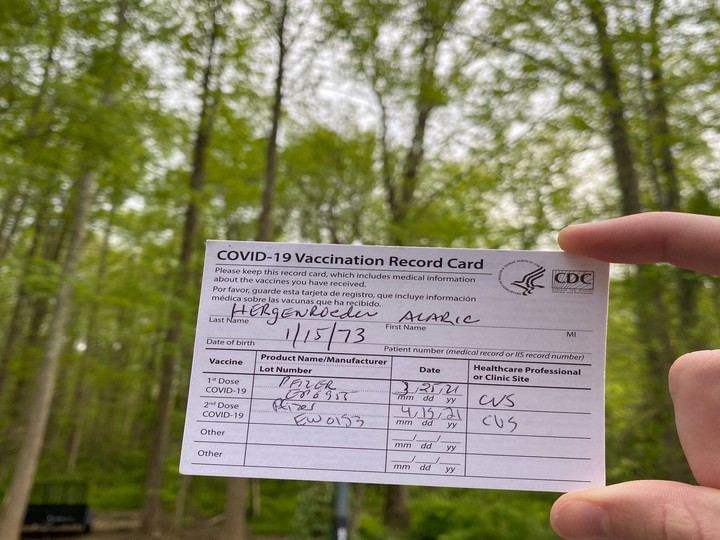 COVID-19 Vaccination Record Card
CDC
Please keep this record card, which includes medical information
about the vaccines you have received.
Por favor, guarde esta tarjeta de registro, que incluye información
médica sobre las vacunas que ha recibido.
HERGENROEDER ALARIC
Last Name First Name MI
1/15/73
Date of birth Patient number (medical record or IIS record number)
Vaccine Product Name/Manufacturer Date Healthcare Professional
Lot Number or Clinic Site
1st Dose PFIZER 3/25/21 CVS
COVID-19 mm dd yy
2nd Dose Pfizer 4/15/21 CVS
COVID-19 EW0153 mm dd yy
Other / /
mm dd yy
Other / /
mm dd yy